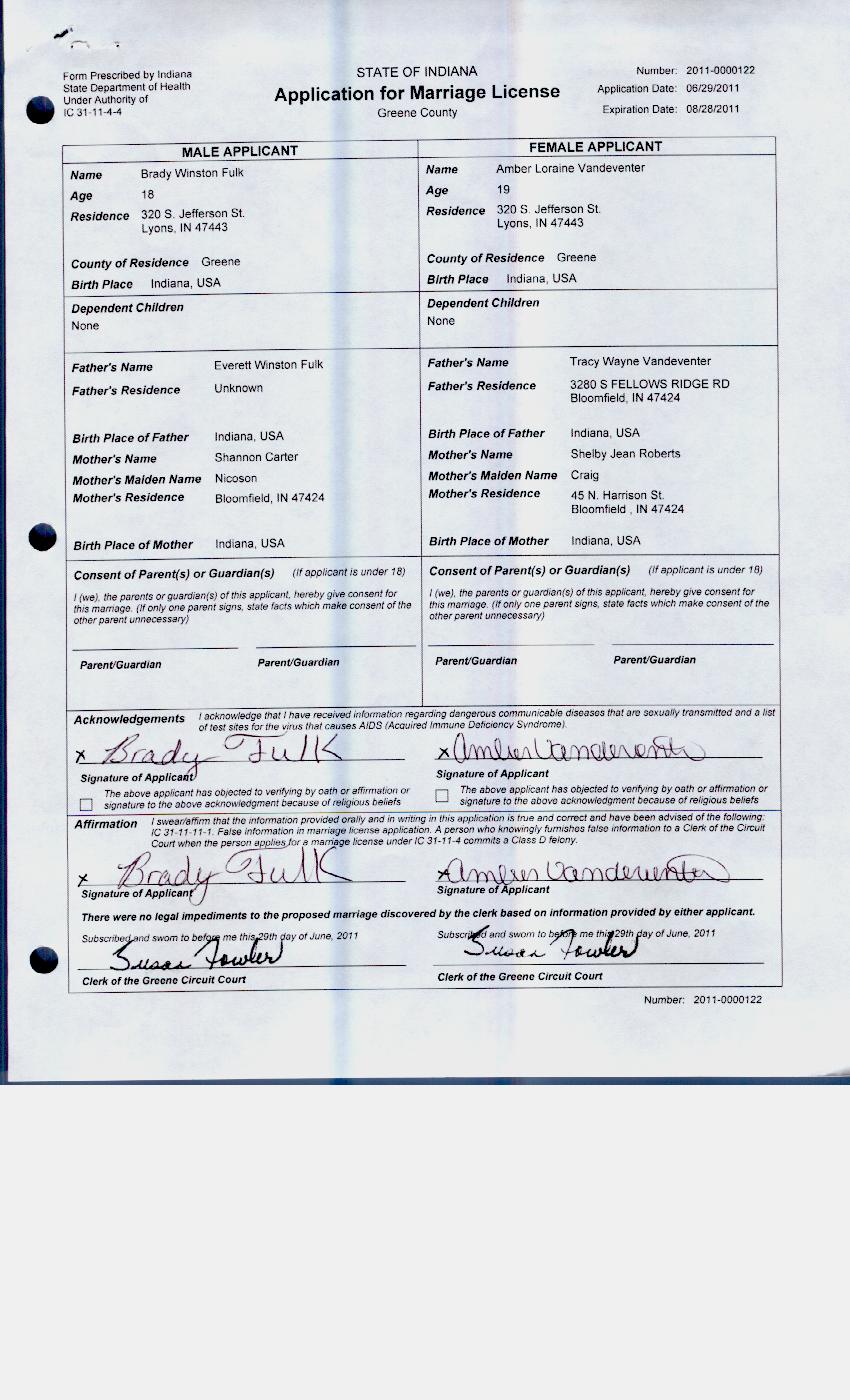 Form Prescribed by Indiana
State Department of Health
Under Authority of
IC 31-11-4-4
STATE OF INDIANA
Application for Marriage License
Greene County
Number: 2011-0000122
Application Date: 06/29/2011
Expiration Date: 08/28/2011
MALE APPLICANT
Name Brady Winston Fulk
Age 18
Residence 320 S. Jefferson St.
Lyons, IN 47443
County of Residence Greene
Birth Place Indiana, USA
Dependent Children
None
Father's Name Everett Winston Fulk
Father's Residence Unknown
Birth Place of Father Indiana, USA
Mother's Name Shannon Carter
Mother's Maiden Name Nicoson
Mother's Residence Bloomfield, IN 47424
Birth Place of Mother Indiana, USA
Consent of Parent(s) or Guardian(s) (If applicant is under 18)
I (we), the parents or guardian(s) of this applicant, hereby give consent for
this marriage. (If only one parent signs, state facts which make consent of the
other parent unnecessary)
Parent/Guardian Parent/Guardian
FEMALE APPLICANT
Name Amber Loraine Vandeventer
Age 19
Residence 320 S. Jefferson St.
Lyons, IN 47443
County of Residence Greene
Birth Place Indiana, USA
Dependent Children
None
Father's Name Tracy Wayne Vandeventer
Father's Residence 3280 S FELLOWS RIDGE RD
Bloomfield, IN 47424
Birth Place of Father Indiana, USA
Mother's Name Shelby Jean Roberts
Mother's Maiden Name Craig
Mother's Residence 45 N. Harrison St.
Bloomfield , IN 47424
Birth Place of Mother Indiana, USA
Consent of Parent(s) or Guardian(s) (If applicant is under 18)
I (we), the parents or guardian(s) of this applicant, hereby give consent for
this marriage. (If only one parent signs, state facts which make consent of the
other parent unnecessary)
Parent/Guardian Parent/Guardian
Acknowledgements I acknowledge that I have received information regarding dangerous communicable diseases that are sexually transmitted and a list
of test sites for the virus that causes AIDS (Acquired Immune Deficiency Syndrome).
x Brady Fulk x Amber Vandeventer
Signature of Applicant Signature of Applicant
The above applicant has objected to verifying by oath or affirmation or
signature to the above acknowledgment because of religious beliefs
The above applicant has objected to verifying by oath or affirmation or
signature to the above acknowledgment because of religious beliefs
Affirmation I swear/affirm that the information provided orally and in writing in this application is true and correct and have been advised of the following:
IC 31-11-11-1. False information in marriage license application. A person who knowingly furnishes false information to a Clerk of the Circuit
Court when the person applies for a marriage license under IC 31-11-4 commits a Class D felony.
x Brady Fulk x Amber Vandeventer
Signature of Applicant Signature of Applicant
There were no legal impediments to the proposed marriage discovered by the clerk based on information provided by either applicant.
Subscribed and sworn to before me this 29th day of June, 2011 Subscribed and sworn to before me this 29th day of June, 2011
Susan Fowler Susan Fowler
Clerk of the Greene Circuit Court Clerk of the Greene Circuit Court
Number: 2011-0000122